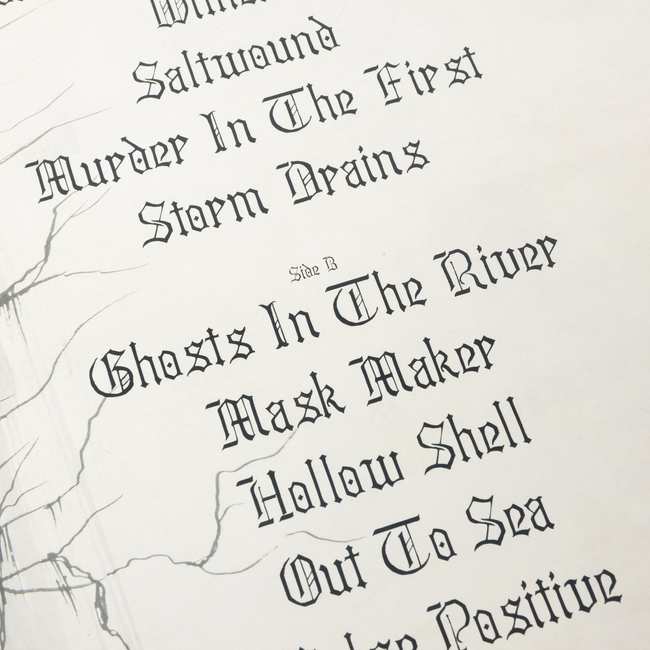 Saltwound
Murder In The First
Storm Drains
Side B
Ghosts In The River
Mask Maker
Hollow Shell
Out To Sea
Positive